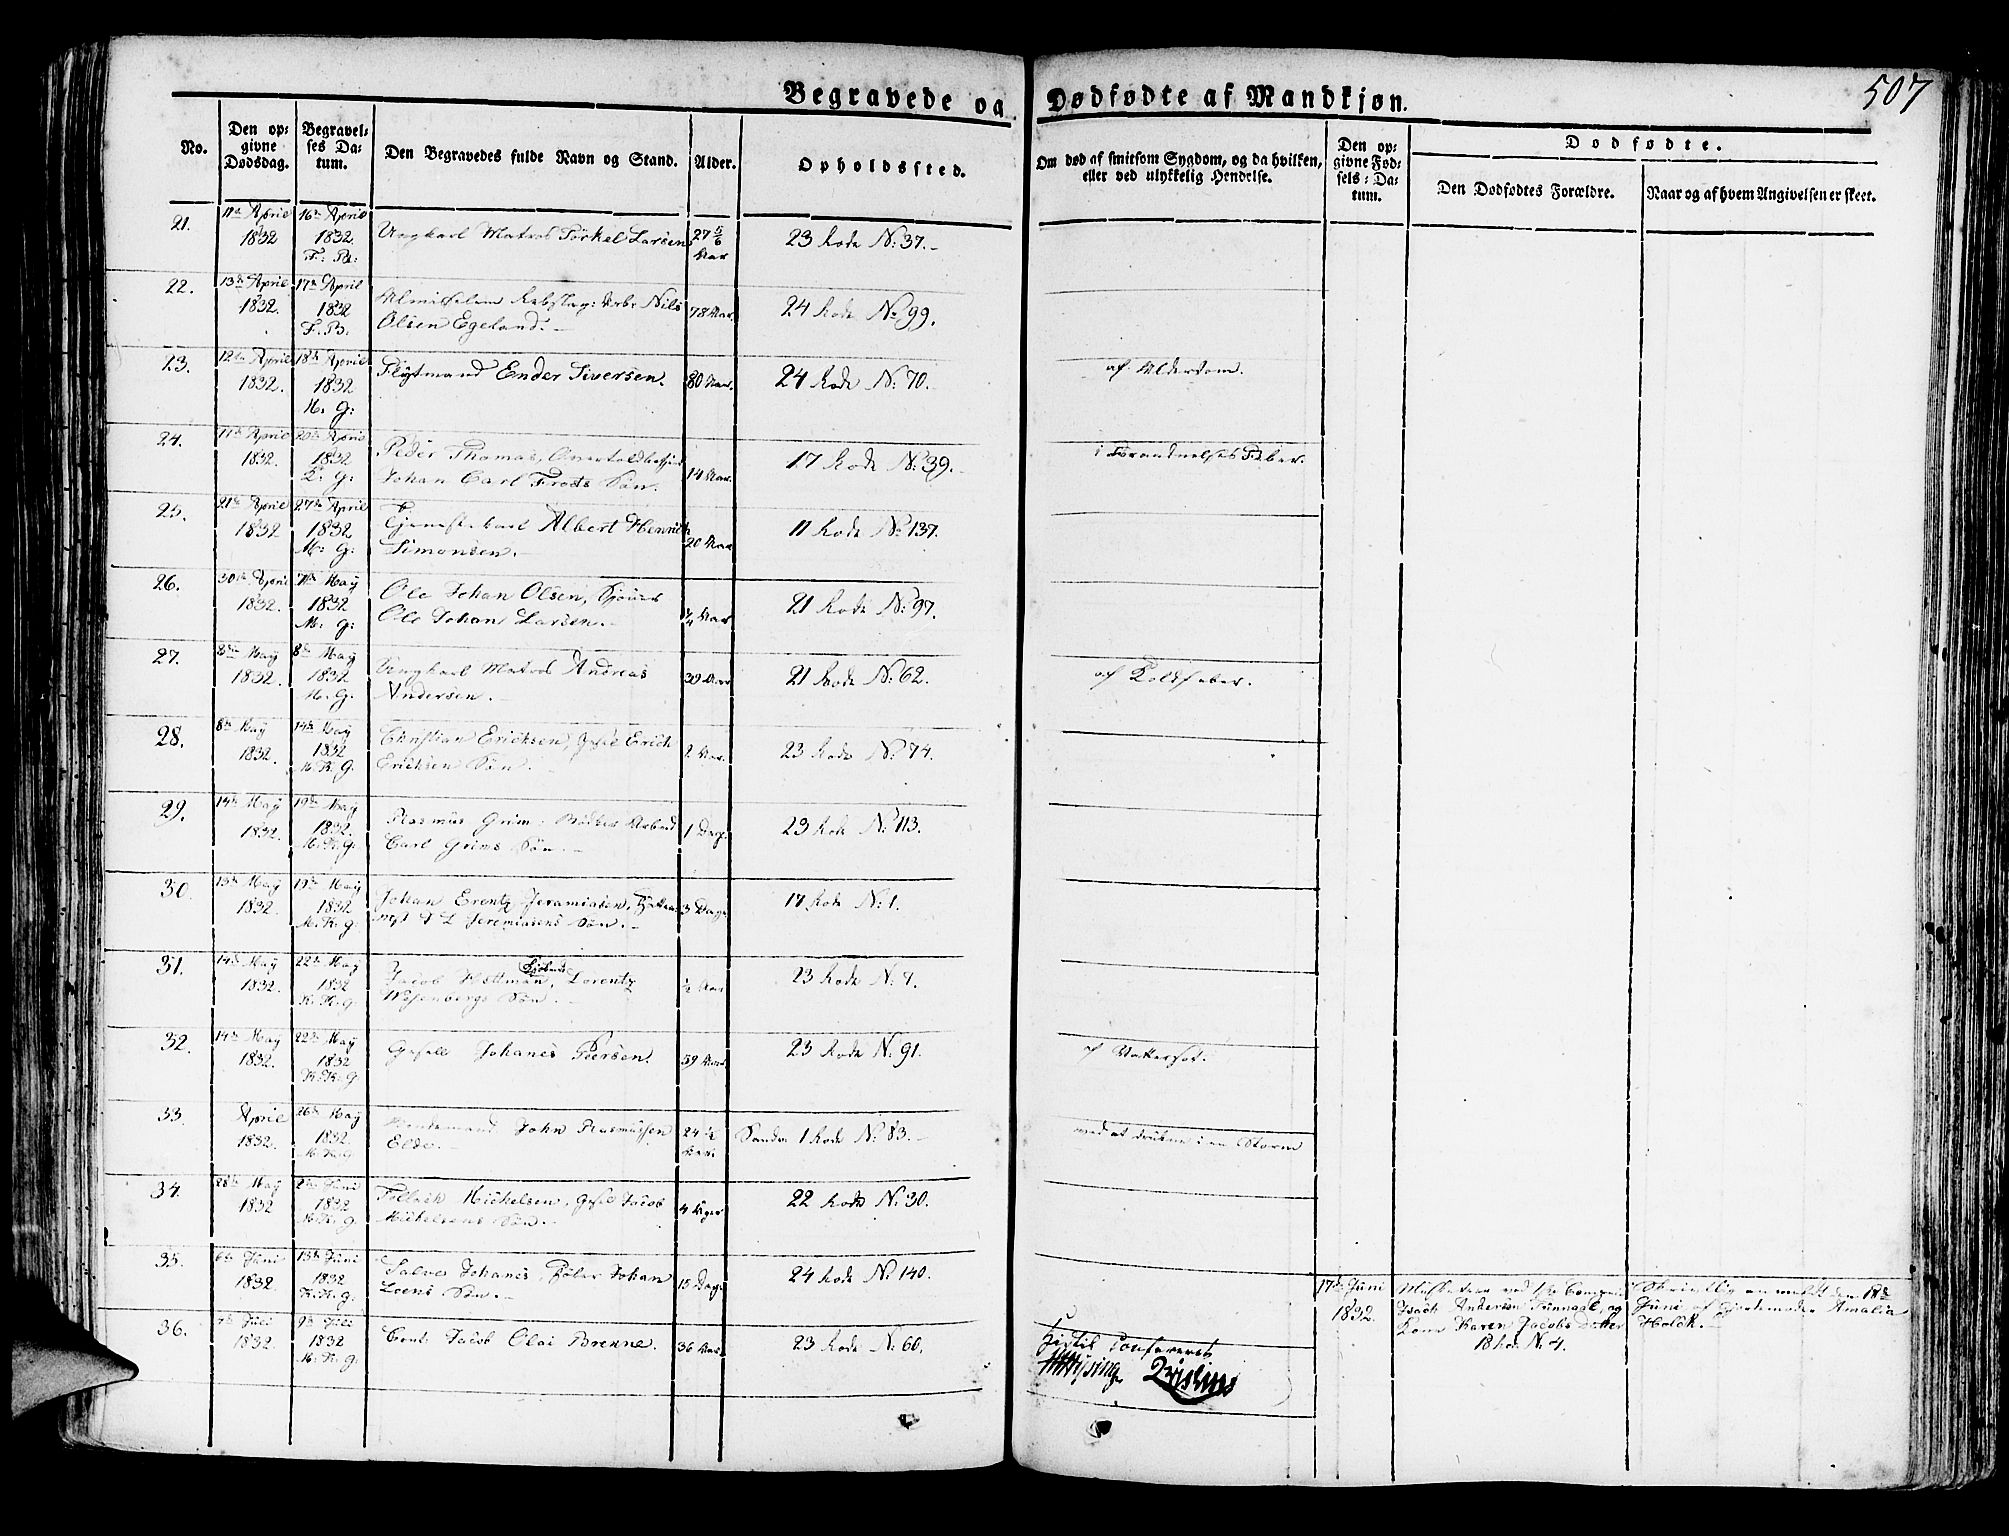 507
Begravede og Dødfødte af Mandkjøn.
No.
Den opgivne Dødsdag.
Begravelses Datum.
Den Begravedes fulde Navn og Stand.
Alder.
Opholdssted.
Om død af smitsom Sygdom, og da hvilken, eller ved ulykkelig Hendelse.
Den opgivne Fødsels-Datum.
Dødfødte.
Den Dødfødtes Forældre.
Naar og af hvem Angivelsen er skeet.
21. 11te April 1832 16de April 1832 F. B: Ungkarl Matros Törkel Larsen 27 5/6 Aar 23 Rode N: 37.
22. 13de April 1832. 17de April 1832 F. B: Almisselem Nils
Olsen Egeland. 78 Aar. 24 Rode No 99.
23. 12te April 1832. 18de April 1832 M. G: Flytmand Ender Siversen. 80 Aar. 24 Rode N: 70. af Alderdom.
24. 17de April 1832. 20de April 1832 K. G: Peder Thomas,
Johan Carl Frods Søn. 14 Aar. 17 Rode N: 39. i Forraadnelses Feber.
25. 21de April 1832 27de April 1832 M. G: Tjenestekarl Albert Henrich
Simonsen. 20 Aar 11 Rode No 137.
26. 30te April 1832. 7de May 1832 M. G: Ole Johan Olsen,
Ole Johan Larsen. 1/4 Aar 21 Rode N: 97.
27. 8de May 1832. 8de May 1832 M. G. Ungkarl Matros Andreas
Andersen. 39 Aar 21 Rode N: 62. af Koldfeber.
28. 8de May 1832. 14de May 1832 M. K. G. Christian Ericksen, Gesel Erich
Ericksen Søn. 2 Aar. 23 Rode N: 74.
29. 14de May 1832. 19de May 1832. M. K. G. Rasmus Grim: Bödker
Carl Grims Søn. 1 Dag. 23 Rode N: 113.
30. 13de May 1832. 19de May 1832 M. K. G. Johan Erentz Jeramiasen,
Jeremiasens Søn. 3 Dage 17 Rode N: 1.
31. 14de May 1832. 22de May 1832 K. K. G. Jacob Hottman, Lorentz
Wesenbergs Søn. 1/2 Aar 23 Rode N: 7.
32. 14de May 1832. 22de May 1832 K. K. G Gesell Johanes Piersen. 59 Aar 23 Rode N: 91. af Vattersot.
33. April 1832. 26de May 1832. M. K. G. Bondemand John Rasmussen
Elde. 24 1/2 Aar. Sandv. 1 Rode N: 83. ved at drukne i en Storm
34. 28de May 1832 2de Juni 1832 M. K. G. Michelsen, Gesel Jacob
Michelsens Søn. 4 Uger 22 Rode N: 30.
35. 6te Juni 1832. 13de Juni 1832 K. K. G. Salve Johanes, Johan
Loens Søn. 15 Dage 24 Rode N: 140.
36. 7de Juli 1832. 9de Juli 1832 M. K. G. Jacob Olai Brenne. 36 Aar. 23 Rode N: 60.
17de Juni 1832. Musketeer ved
Isach Andersen og
Kone Karen Jacobsdatter
18 Rode N. 4.
Skriftlig anmeldt den 18de
Juni af Gjordemoder Amalia
Holck.
Hidtil Confereret